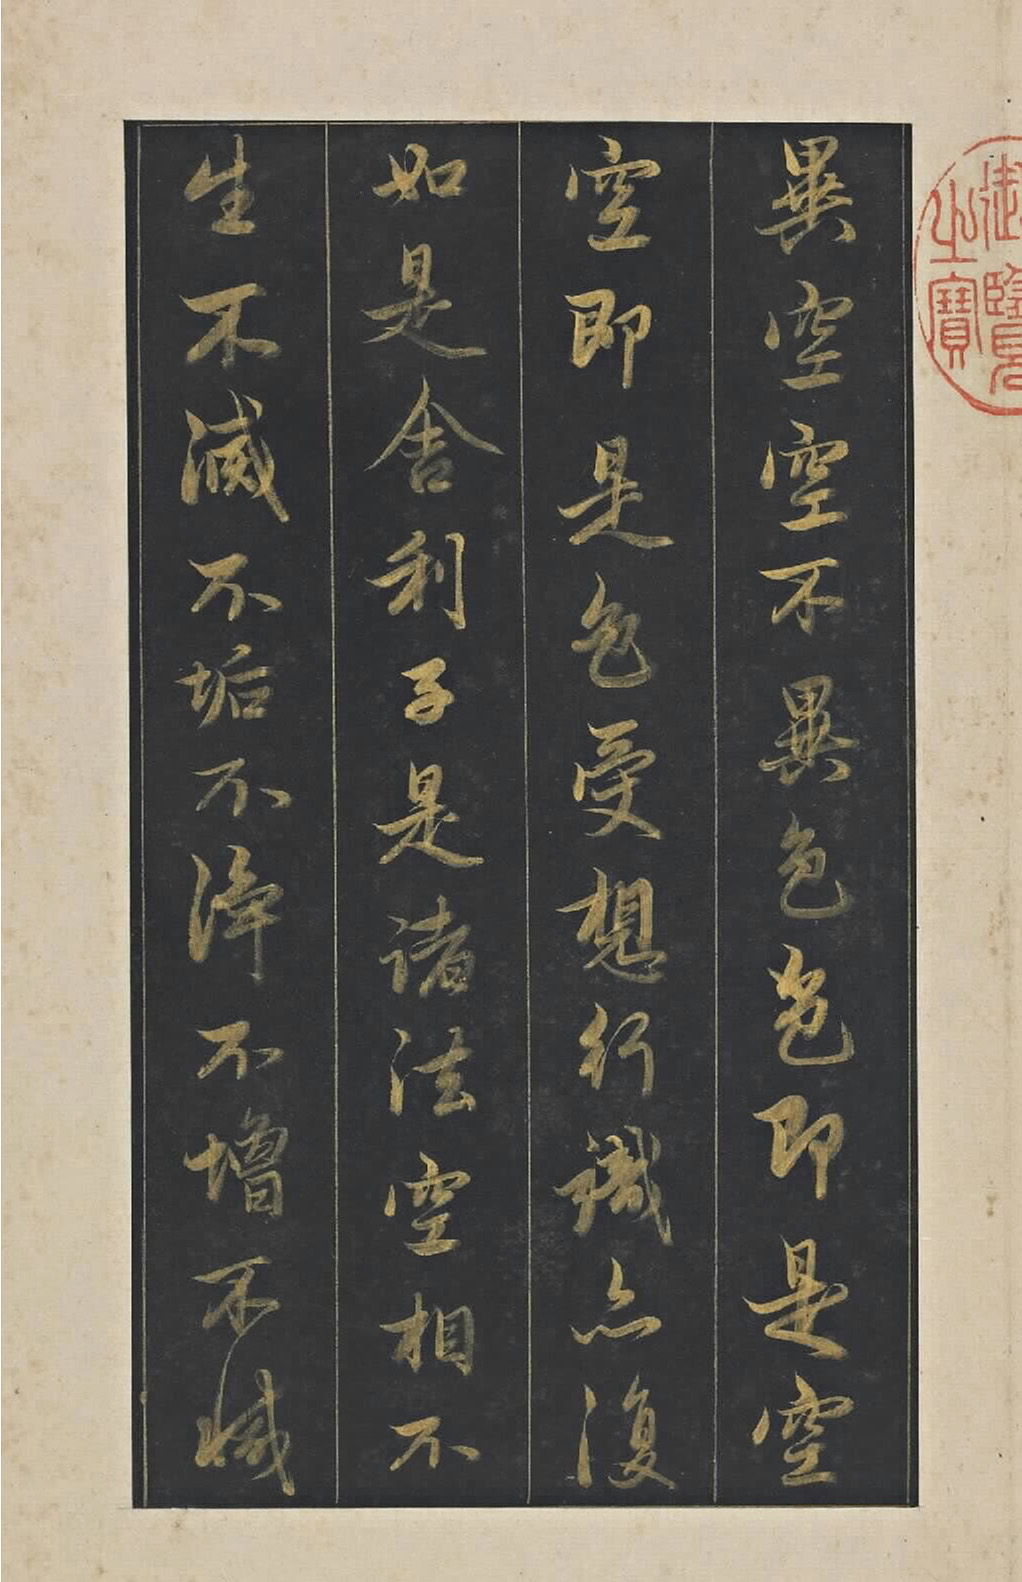 異空空不異色色即是空
空即是色受想行識亦復
如是舍利子是諸法空相不
生不滅不垢不淨不增不減
御覽之寶